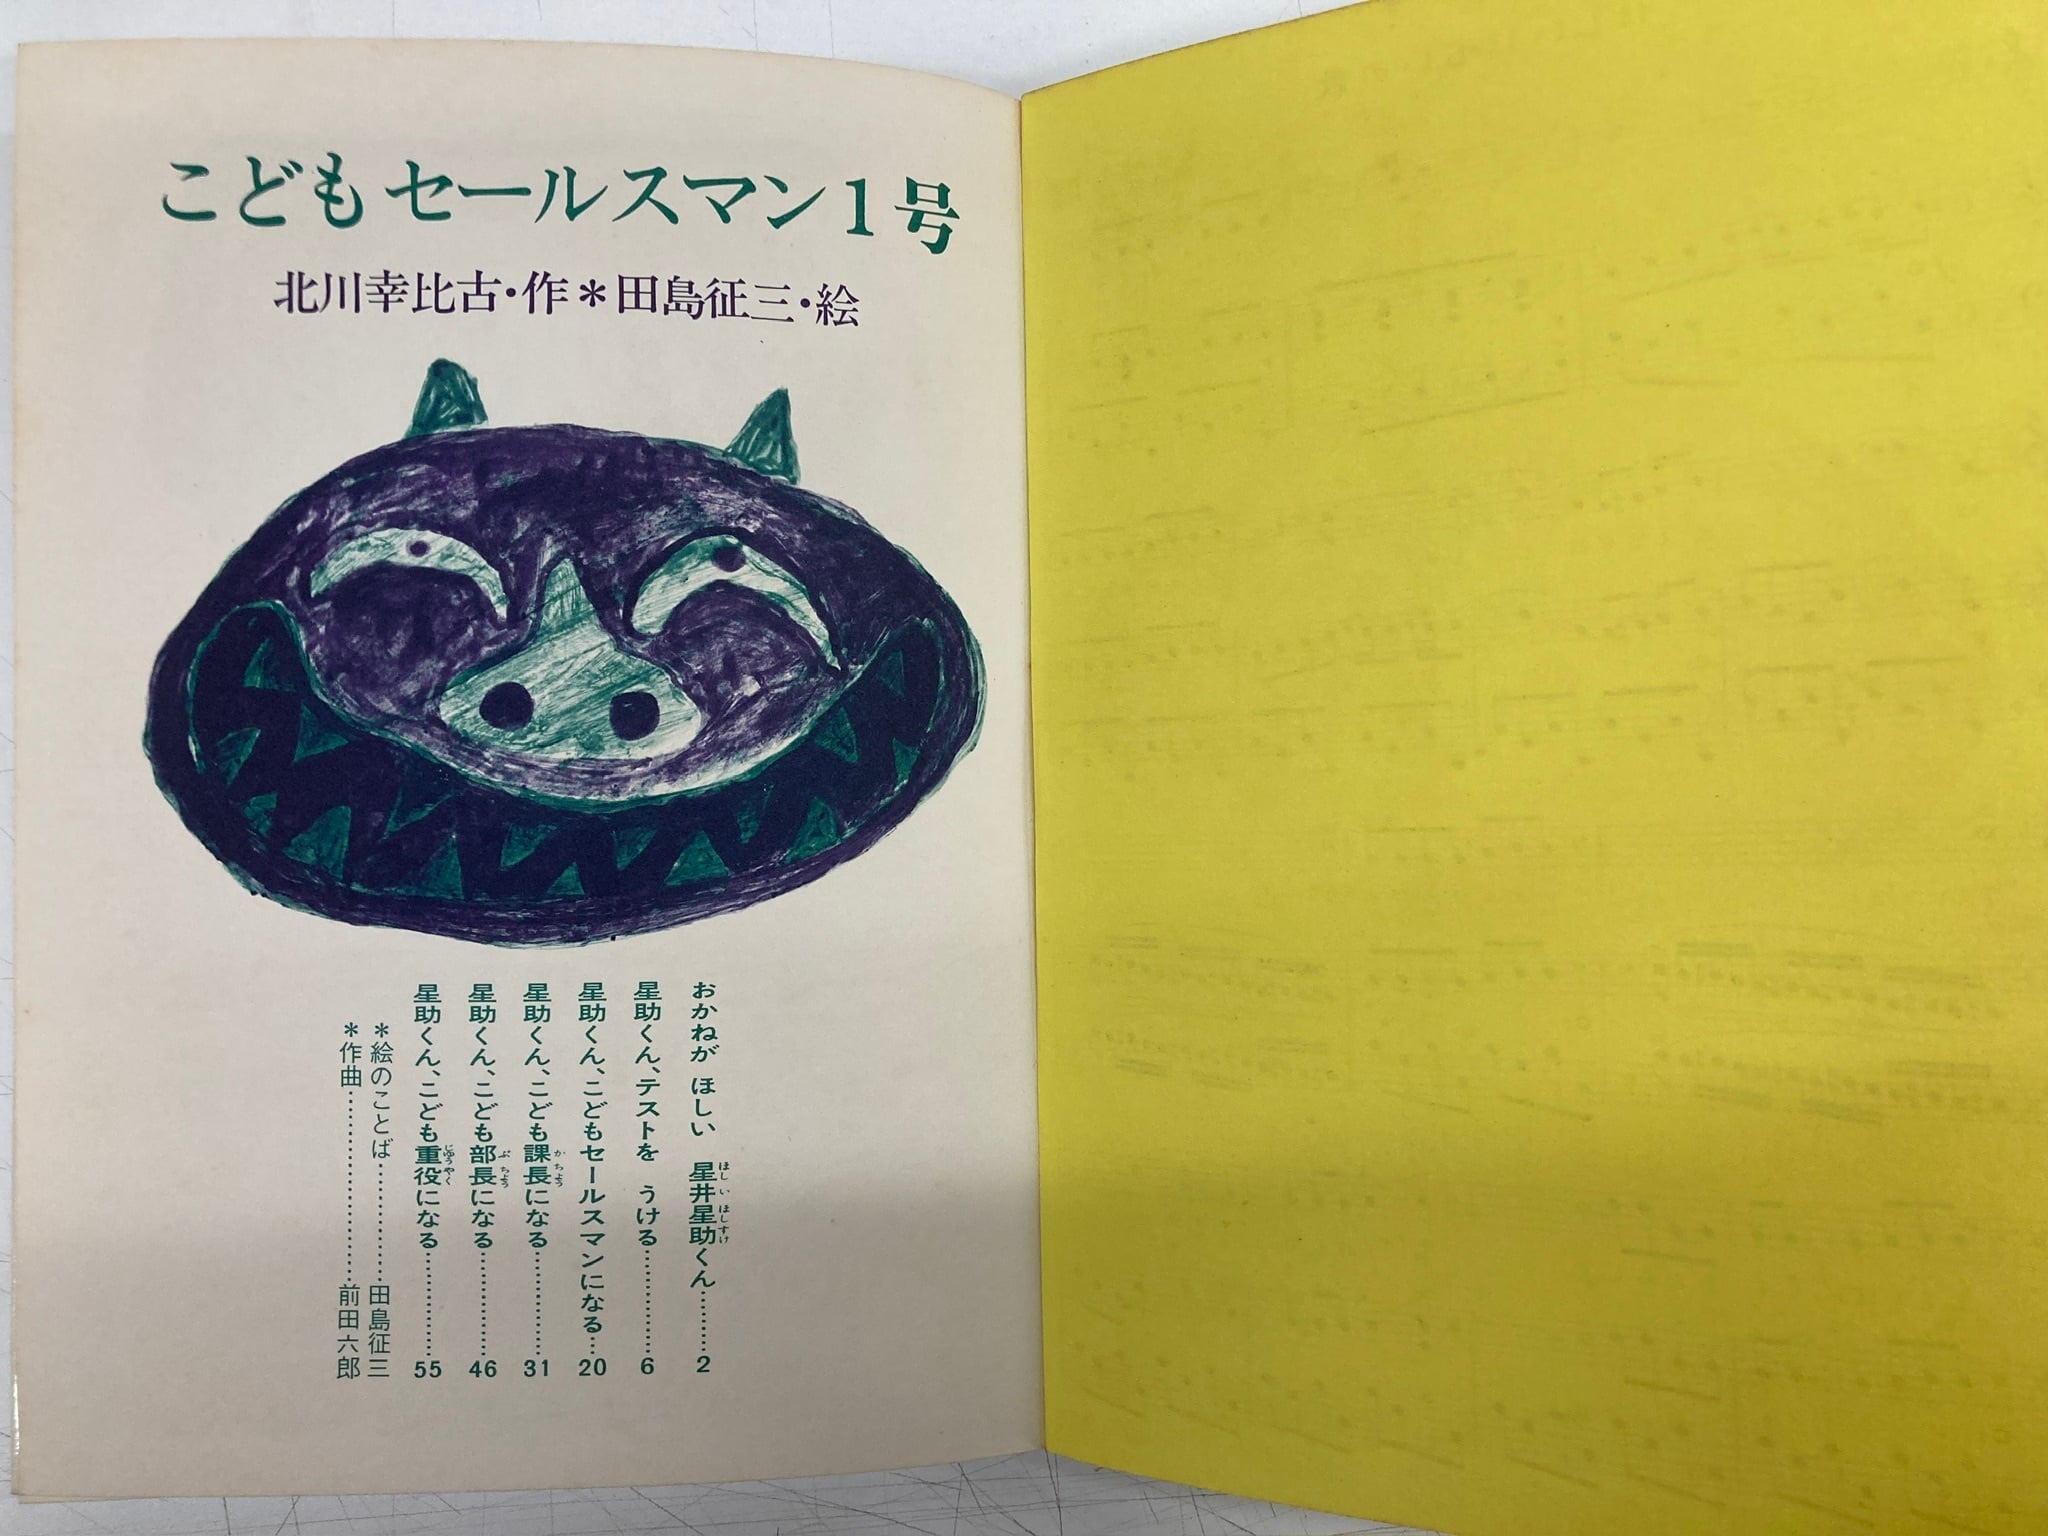 こども セールスマン1号
北川幸比古・作＊田島征三・絵
おかねが ほしい 星井星助くん………2
ほしいほしすけ
星助くん、テストを うける…………6
星助くん、こどもセールスマンになる…20
星助くん、こども課長になる…………31
かちょう
星助くん、こども部長になる…………46
ぶちょう
星助くん、こども重役になる…………55
じゅうやく
＊絵のことば……………田島征三
＊作曲…………………前田六郎